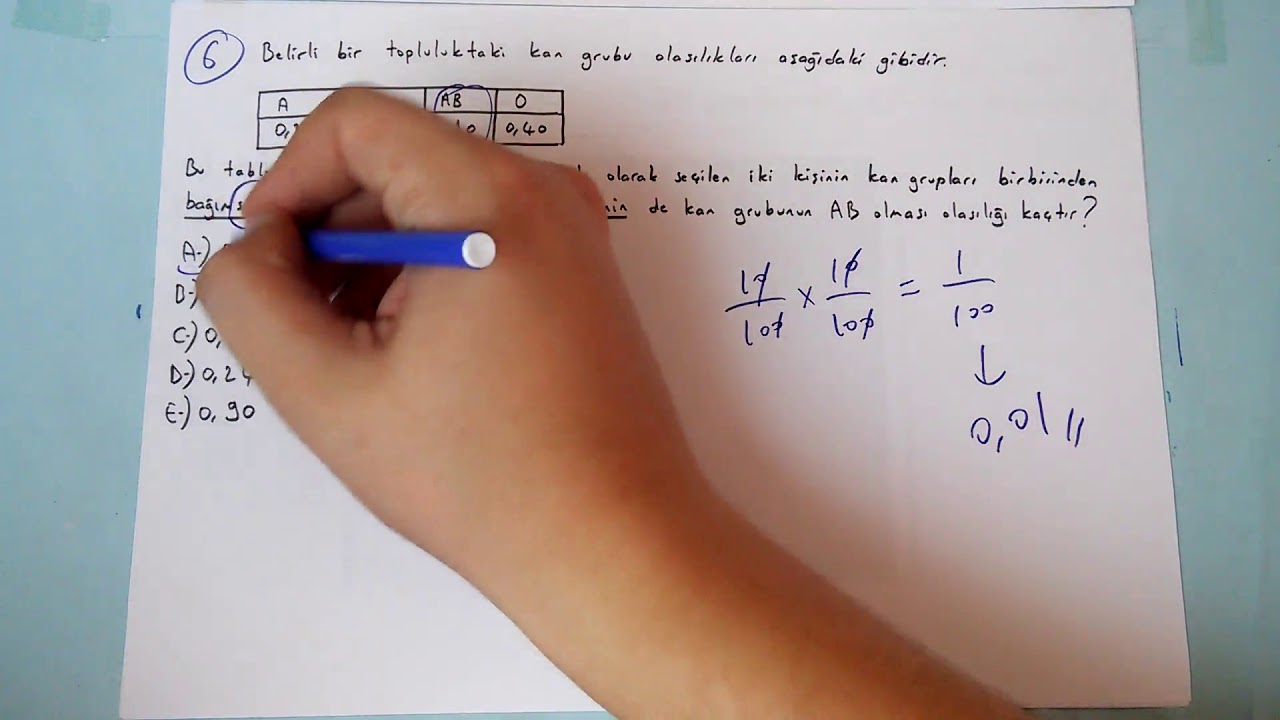 6 Belirli bir topluluktaki kan grubu olasılıkları aşağıdaki gibidir.
A AB O
0, 0,40
Bu olarak seçilen iki kişinin kan grupları birbirinden
de kan grubunun AB olması olasılığı kaçtır?
A-)
B-)
C-) 0,
D-) 0,24
E-) 0,90
10/100 x 10/100 = 1/100
↓
0,01 //